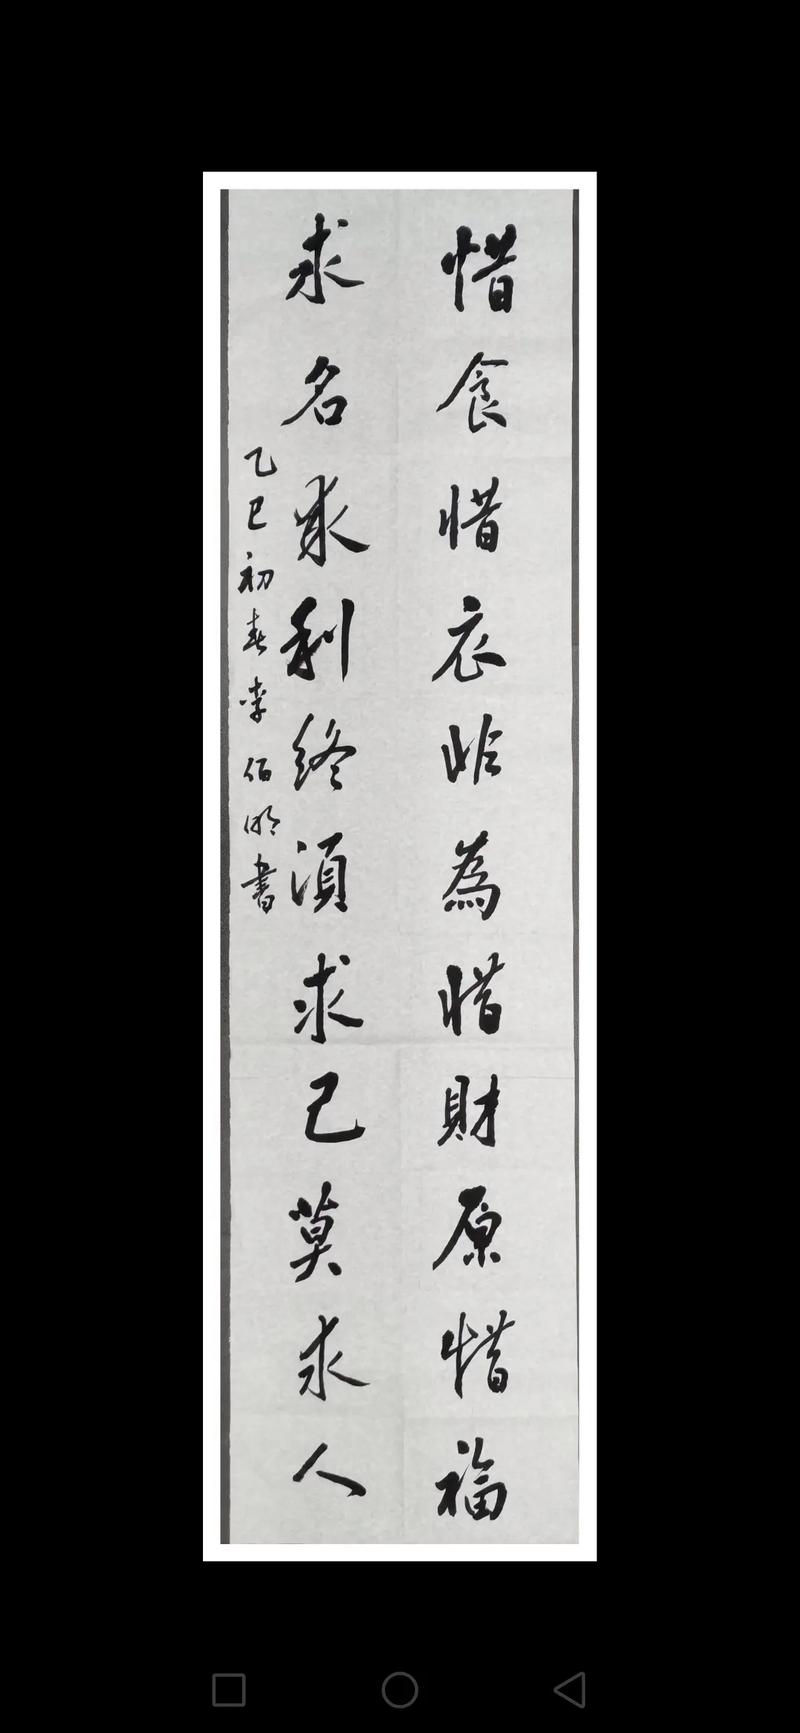 惜食惜衣非為惜財原惜福
求名求利終須求己莫求人
乙巳初春李佰明書